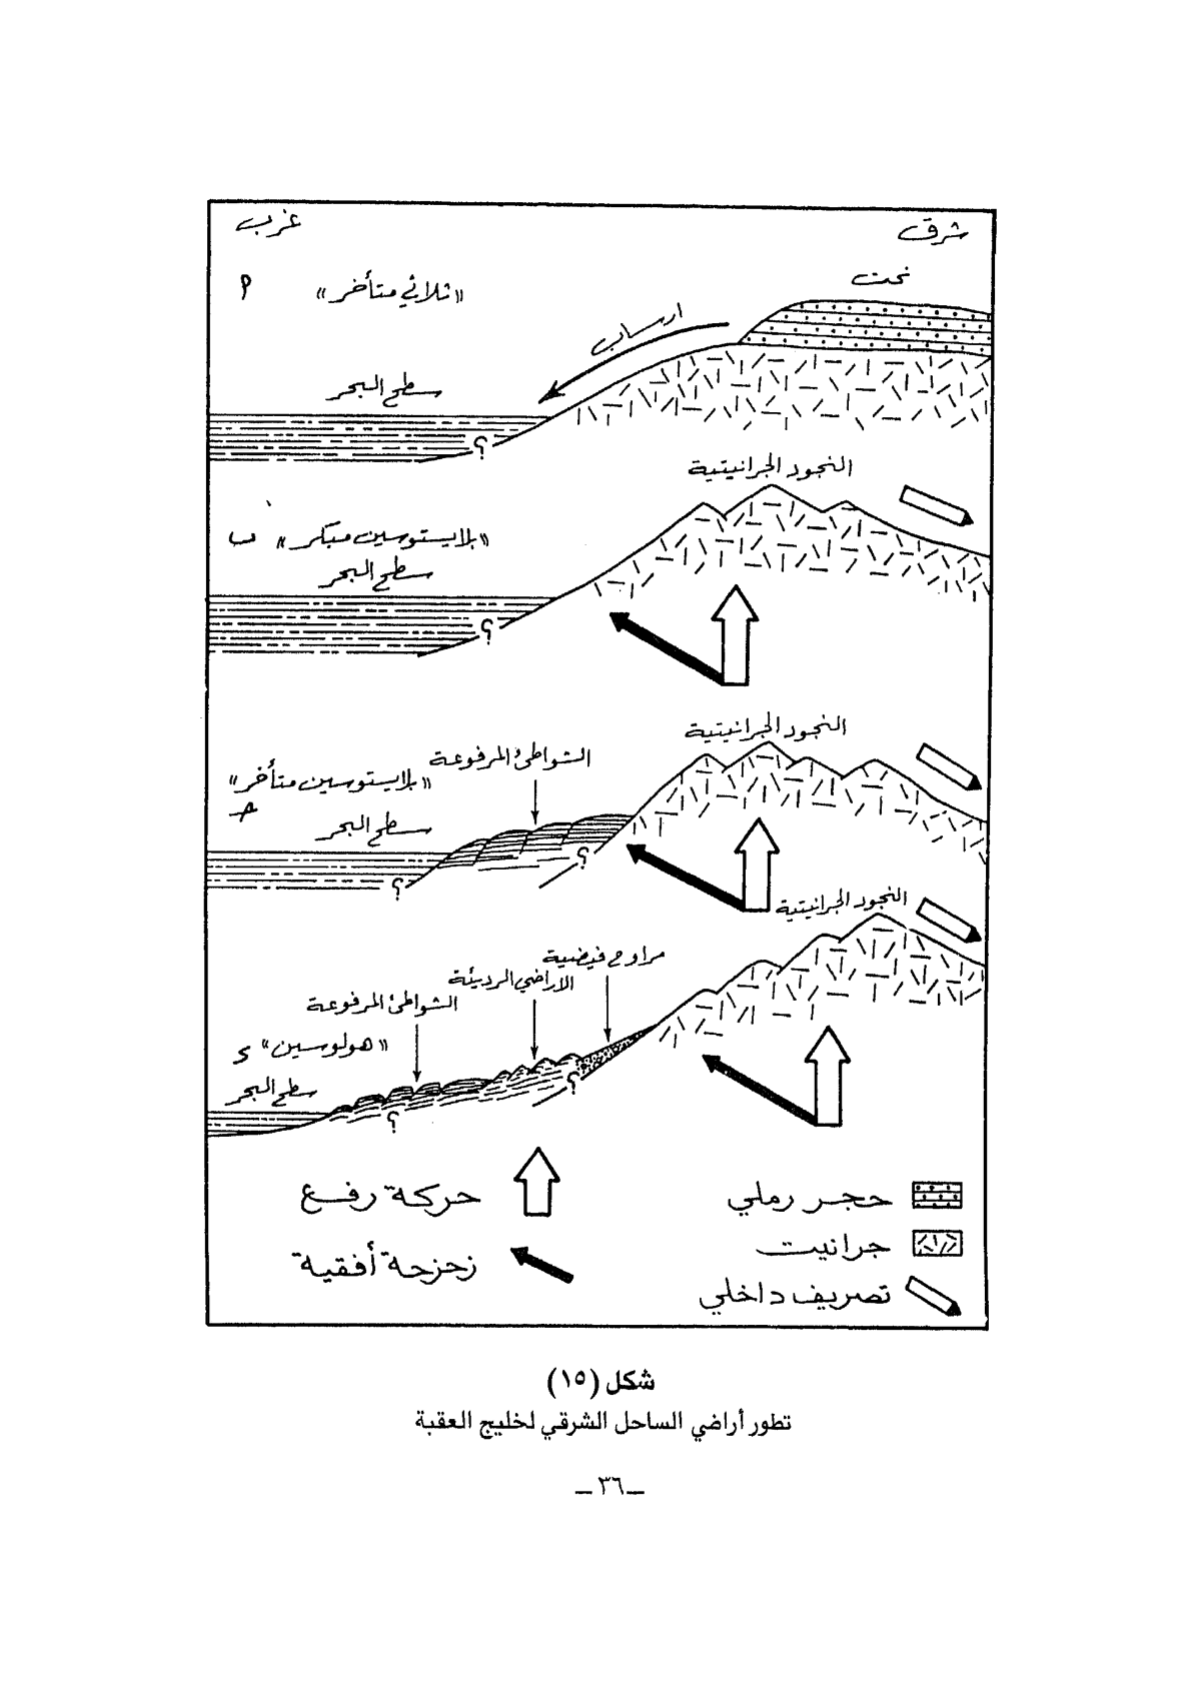 شرق
غرب
نحت
«ثلاثي متأخر»
أ
ارساب
سطح البحر
؟
النجود الجرانيتية
«بلايستوسين مبكر»
ب
سطح البحر
؟
النجود الجرانيتية
الشواطئ المرفوعة
«بلايستوسين متأخر»
جـ
سطح البحر
؟
؟
النجود الجرانيتية
مراوح فيضية
الاراضي الرديئة
الشواطئ المرفوعة
«هولوسين»
د
سطح البحر
؟
؟
حجر رملي
حركة رفع
جرانيت
زحزحة أفقية
تصريف داخلي
شكل (١٥)
تطور أراضي الساحل الشرقي لخليج العقبة
ــ ٣٦ ــ